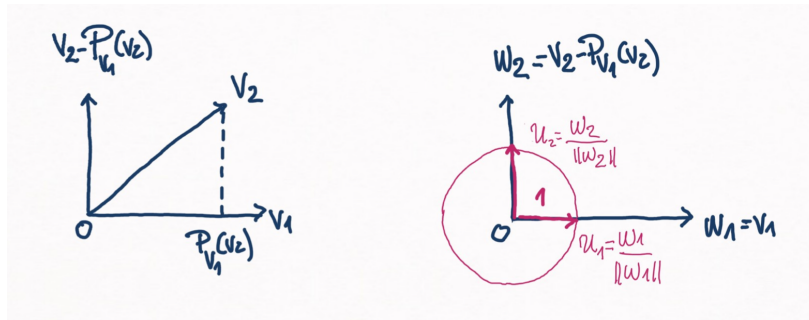 V2-P_V1(V2)
V2
V1
O
P_V1(V2)
W2=V2-P_V1(V2)
u2=W2/||W2||
1
O
W1=V1
u1=W1/||W1||